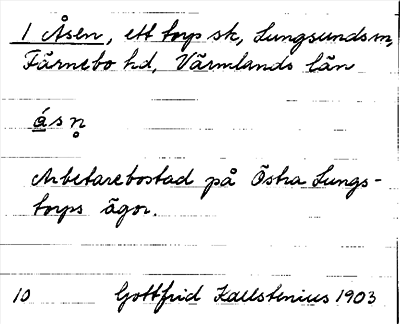 1 Åsen, ett torp sk, Lungsunds sn,
Färnebo hd, Värmlands län
ás n̥
Arbetarebostad på Östra Lungs-
torps ägor.
10 Gottfrid Kallstenius 1903